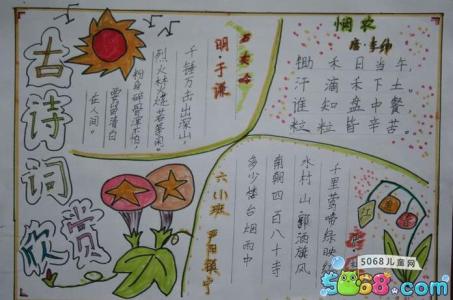 古诗词欣赏
石灰吟
明·于谦
千锤万击出深山
烈火焚烧若等闲。
粉身碎骨浑不怕
要留清白
在人间。
悯农
唐·李绅
锄禾日当午。
汗滴禾下土
谁知盘中餐
粒粒皆辛苦
千里莺啼绿映
水村山郭酒旗风
南朝四百八十寺
多少楼台烟雨中
六小班
5068儿童网
5068.com